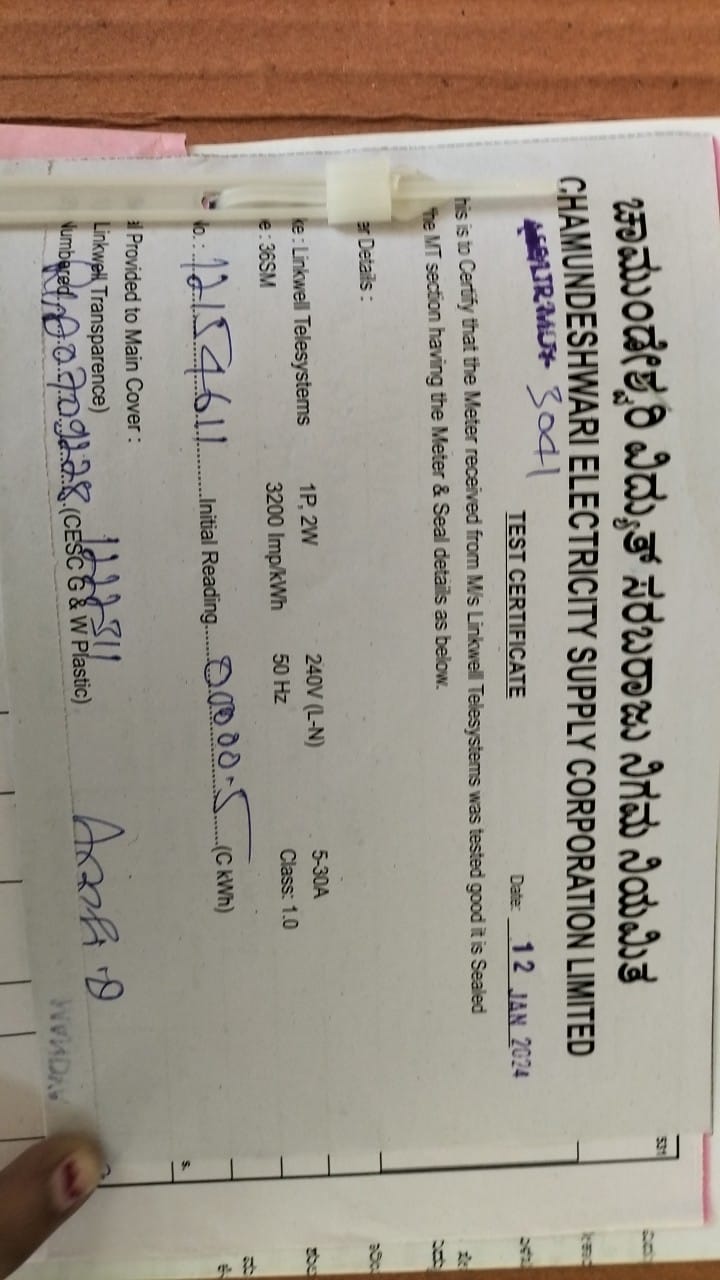 ಚಾಮುಂಡೇಶ್ವರಿ ವಿದ್ಯುತ್ ಸರಬರಾಜು ನಿಗಮ ನಿಯಮಿತ
CHAMUNDESHWARI ELECTRICITY SUPPLY CORPORATION LIMITED
3041
TEST CERTIFICATE Date: 12 JAN 2024
his is to Certify that the Meter received from M/s Linkwell Telesystems was tested good it is Sealed
he MT section having the Meter & Seal details as below.
er Details :
ke : Linkwell Telesystems 1P, 2W 240V (L-N) 5-30A
e : 36SM 3200 Imp/kWh 50 Hz Class: 1.0
No. : 12154611 Initial Reading 00000.5 (C kWh)
al Provided to Main Cover :
Linkwell Transparence)
Numbered (CESC G & W Plastic)
531